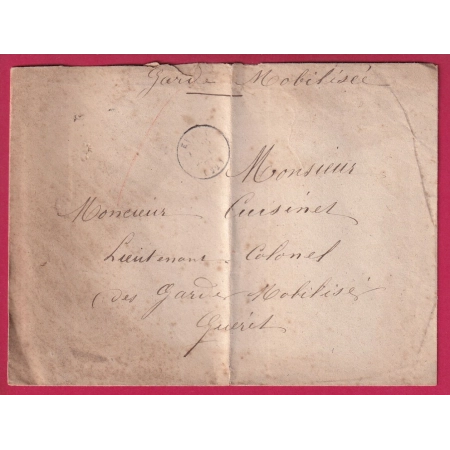 Garde Mobilisée
Monsieur
Moncieur Cuisinet
Lieutenant Colonel
des Garde Mobilisé
Guéret